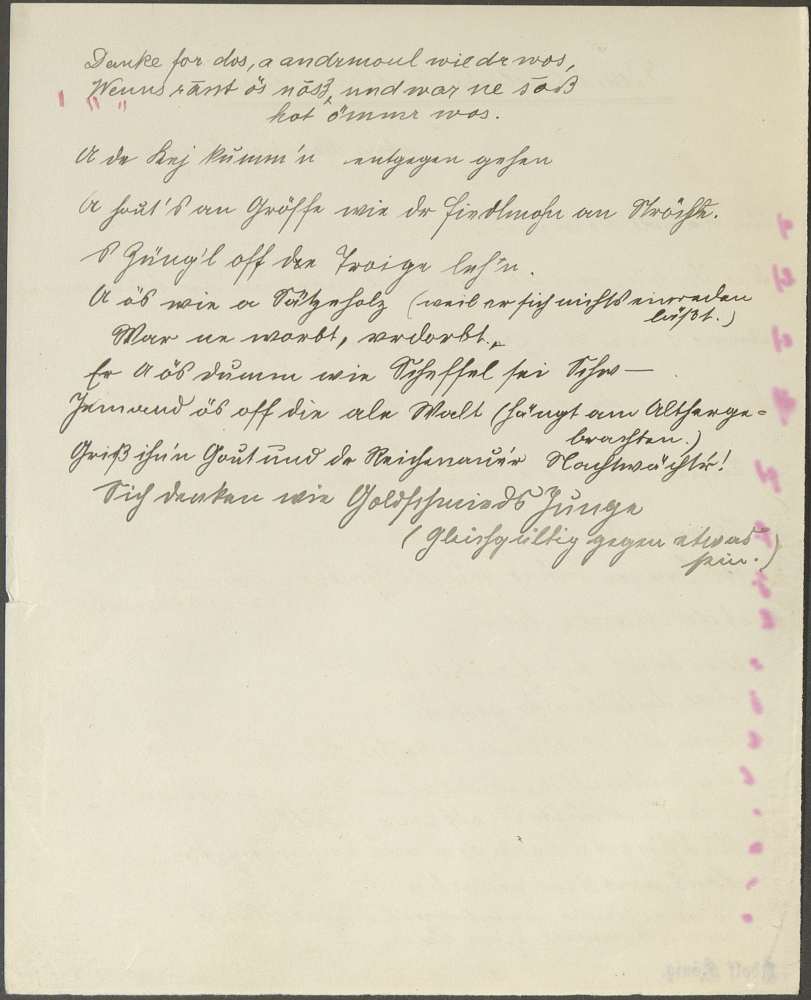 Danke for dos, a andrmoul wiedr wos,
Wenns rānt ös nōß, und war ne sōß
hot ömmr wos.
A dr Kej kumm'n entgegen gehen
A hout's an Gröffe wie dr Fiedlmohn an Ströchl.
s Züng'l off die Troige leh'n.
A ös wie a Sätzeholz (weil er sich nichts einreden
läßt.)
War ne worbt, verdorbt.
Er A ös dumm wie Scheffel sei Schw—
Jemand ös off die ale Walt (hängt am Altherge-
brachten.)
Griß ihn Gout und dr Reichenauer Nachtwächtr!
Sich denken wie Goldschmieds Junge
(Gleichgültig gegen etwas
sein.)